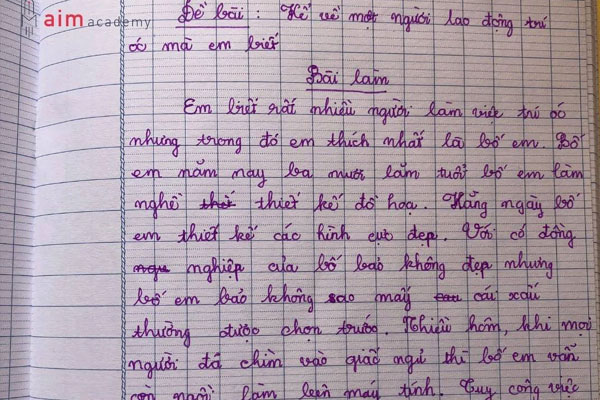 aim academy
Đề bài : Kể về một người lao động trí
óc mà em biết
Bài làm
Em biết rất nhiều người làm việc trí óc
nhưng trong đó em thích nhất là bố em. Bố
em năm nay ba mươi lăm tuổi bố em làm
nghề thiết kế đồ họa. Hằng ngày bố
em thiết kế các hình cực đẹp. Với có đồng
nghiệp của bố bảo không đẹp nhưng
bố em bảo không sao mấy cái xấu
thường được chọn trước. Nhiều hôm, khi mọi
người đã chìm vào giấc ngủ thì bố em vẫn
còn ngồi làm bên máy tính. Tuy công việc